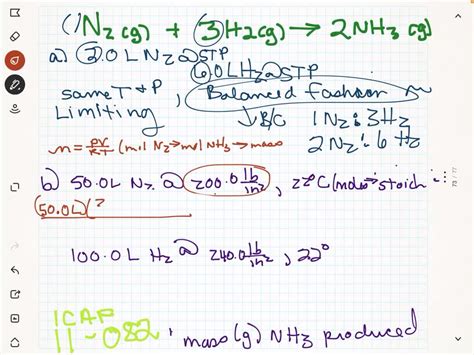 (1)N₂(g) + (3)H₂(g) → 2NH₃(g)
a) 2.0L N₂ @ STP
6.0L H₂ @ STP
same T & P, Balanced Fashion ~
Limiting ↓ B/C 1N₂:3H₂
n = PV/RT (mol N₂→mol NH₃→mass 2N₂:6H₂
b) 50.0L N₂ @ 200.0 lb/in², 22°C (moles→stoich
(50.0L)(?
100.0L H₂ @ 240.0 lb/in², 22°
ICAP
11-082 mass (g) NH₃ produced